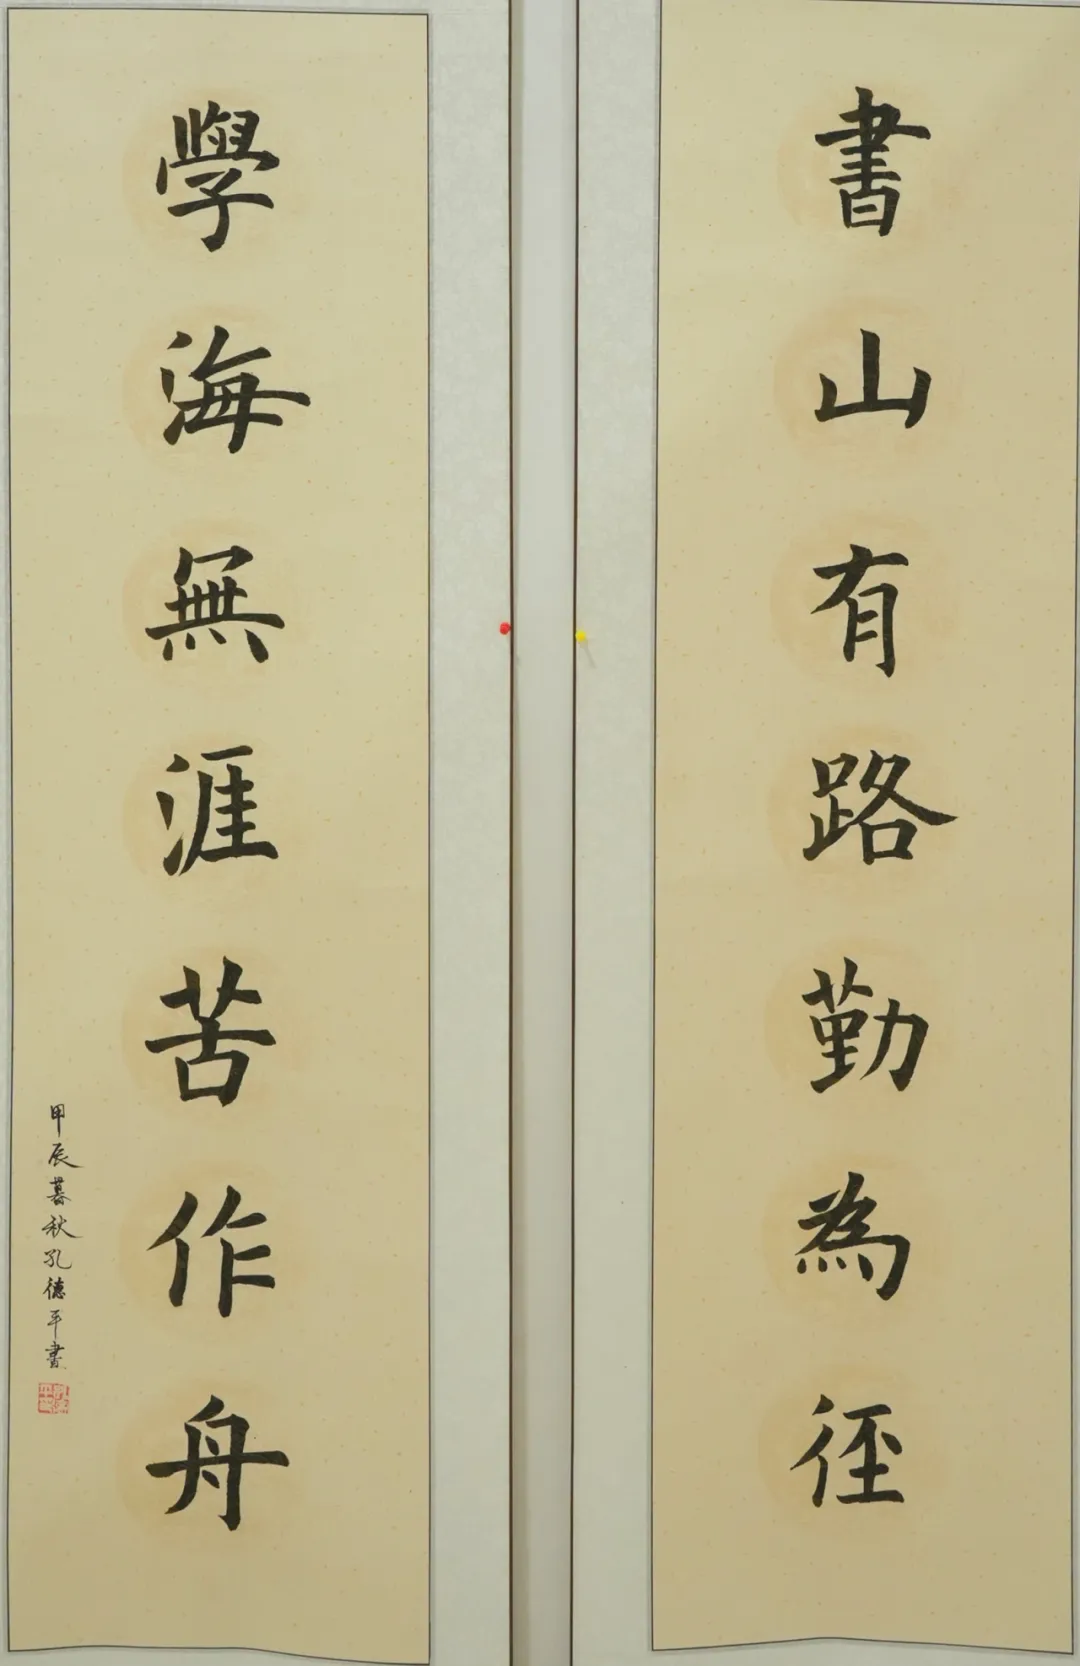 書山有路勤為徑
學海無涯苦作舟
甲辰暮秋孔德平書